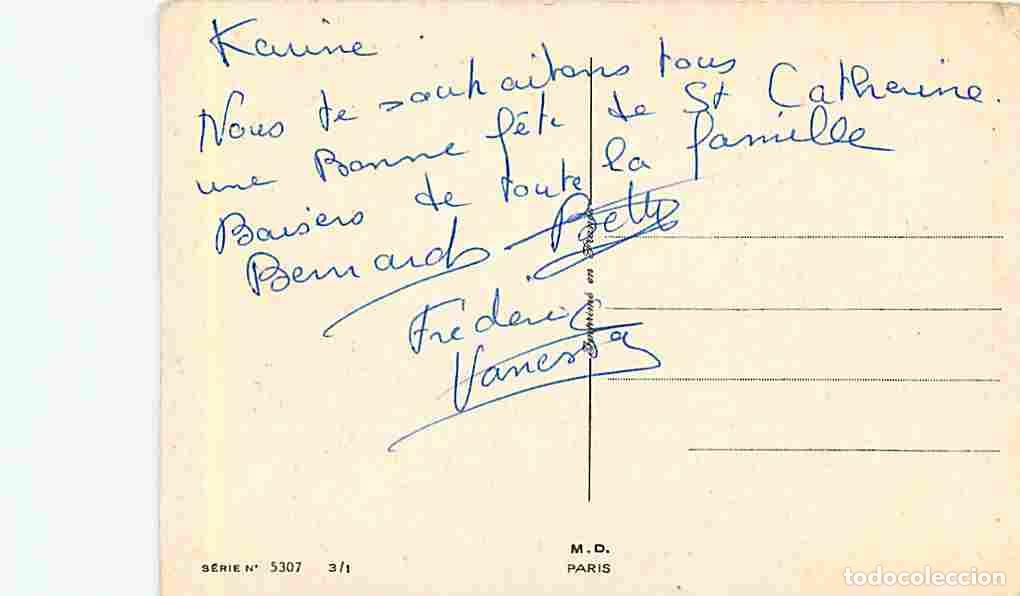 Karine
Nous te souhaitons tous
une Bonne fête de St Catherine.
Baisers de toute la famille
Bernard Betty
Fréderic
Vanessa
Imprimé en France
M. D.
PARIS
SÉRIE N° 5307 3/1
todocoleccion